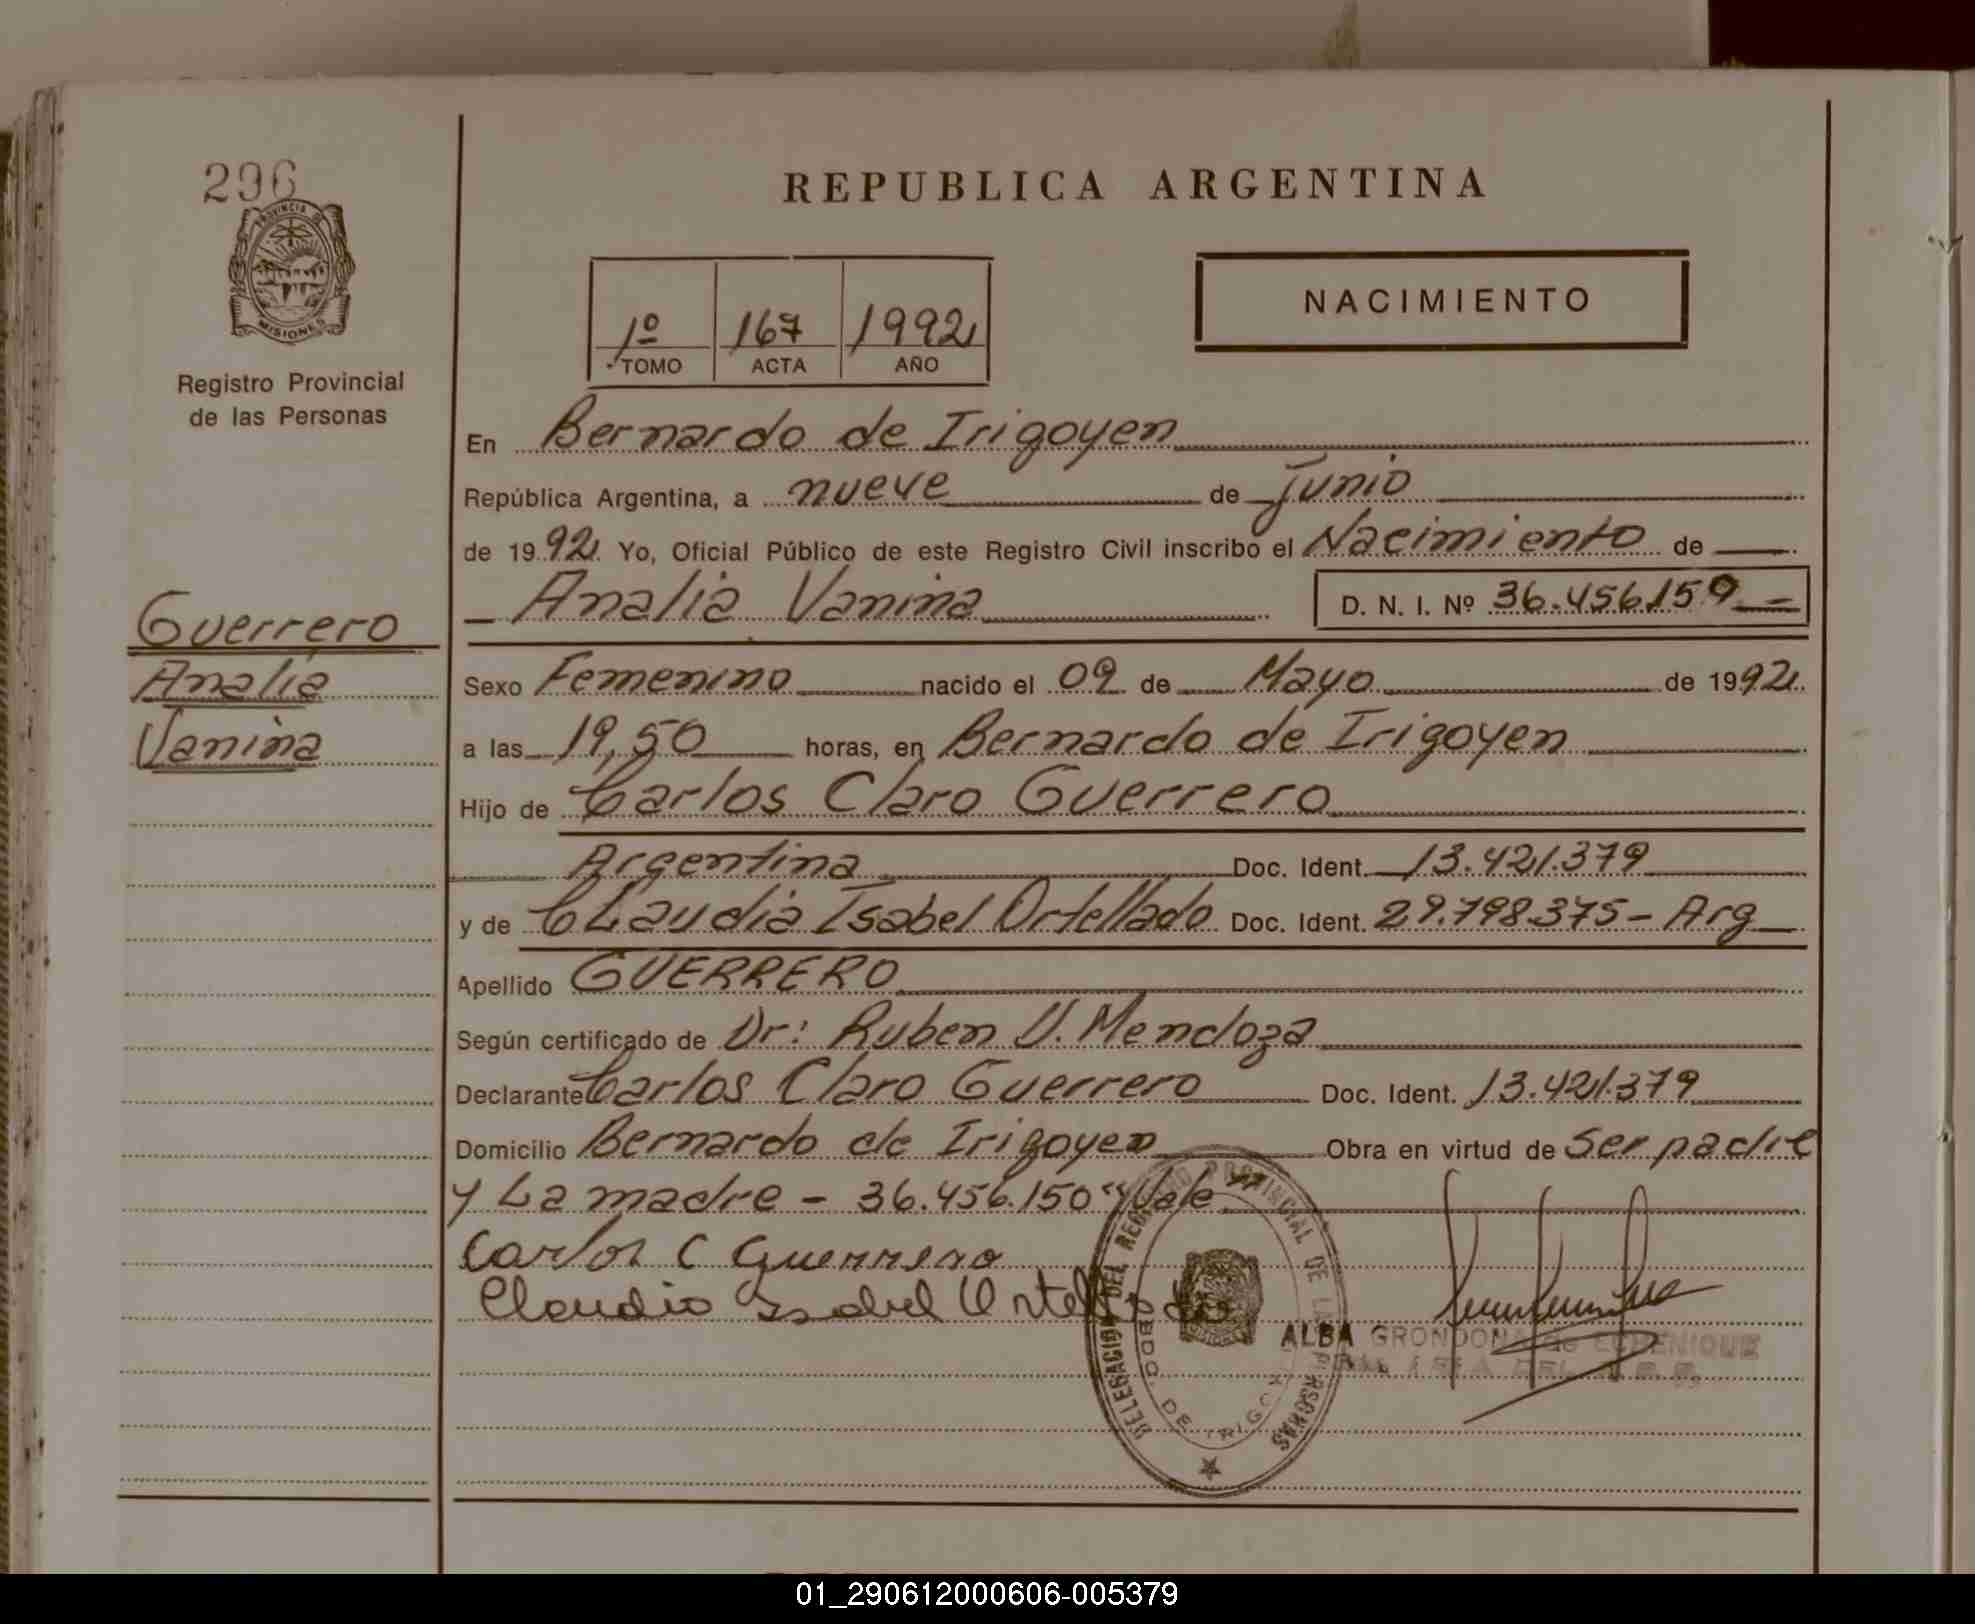 296
PROVINCIA DE
MISIONES
Registro Provincial
de las Personas
Guerrero
Analía
Vanina
REPUBLICA ARGENTINA
1º 167 1992
TOMO ACTA AÑO
NACIMIENTO
En Bernardo de Irigoyen
República Argentina, a nueve de Junio
de 1992 Yo, Oficial Público de este Registro Civil inscribo el Nacimiento de
Analia Vanina D. N. I. Nº 36.456.150
Sexo Femenino nacido el 09 de Mayo de 1992
a las 19,50 horas, en Bernardo de Irigoyen
Hijo de Carlos Claro Guerrero
Argentina Doc. Ident. 13.421.379
y de CLaudia Isabel Ortellado Doc. Ident. 29.798.375 - Arg
Apellido GUERRERO
Según certificado de Dr: Ruben V. Mendoza
Declarante Carlos Claro Guerrero Doc. Ident. 13.421.379
Domicilio Bernardo de Irigoyen Obra en virtud de Ser padre
y La madre - 36.456.150 "Vale"
Carlos C Guerrero
Claudia Isabel Ortellado
DELEGACION DEL REGISTRO PROVINCIAL DE LAS PERSONAS
BDO. DE IRIGOYEN
ALBA GRONDONA de ECHENIQUE
01_290612000606-005379